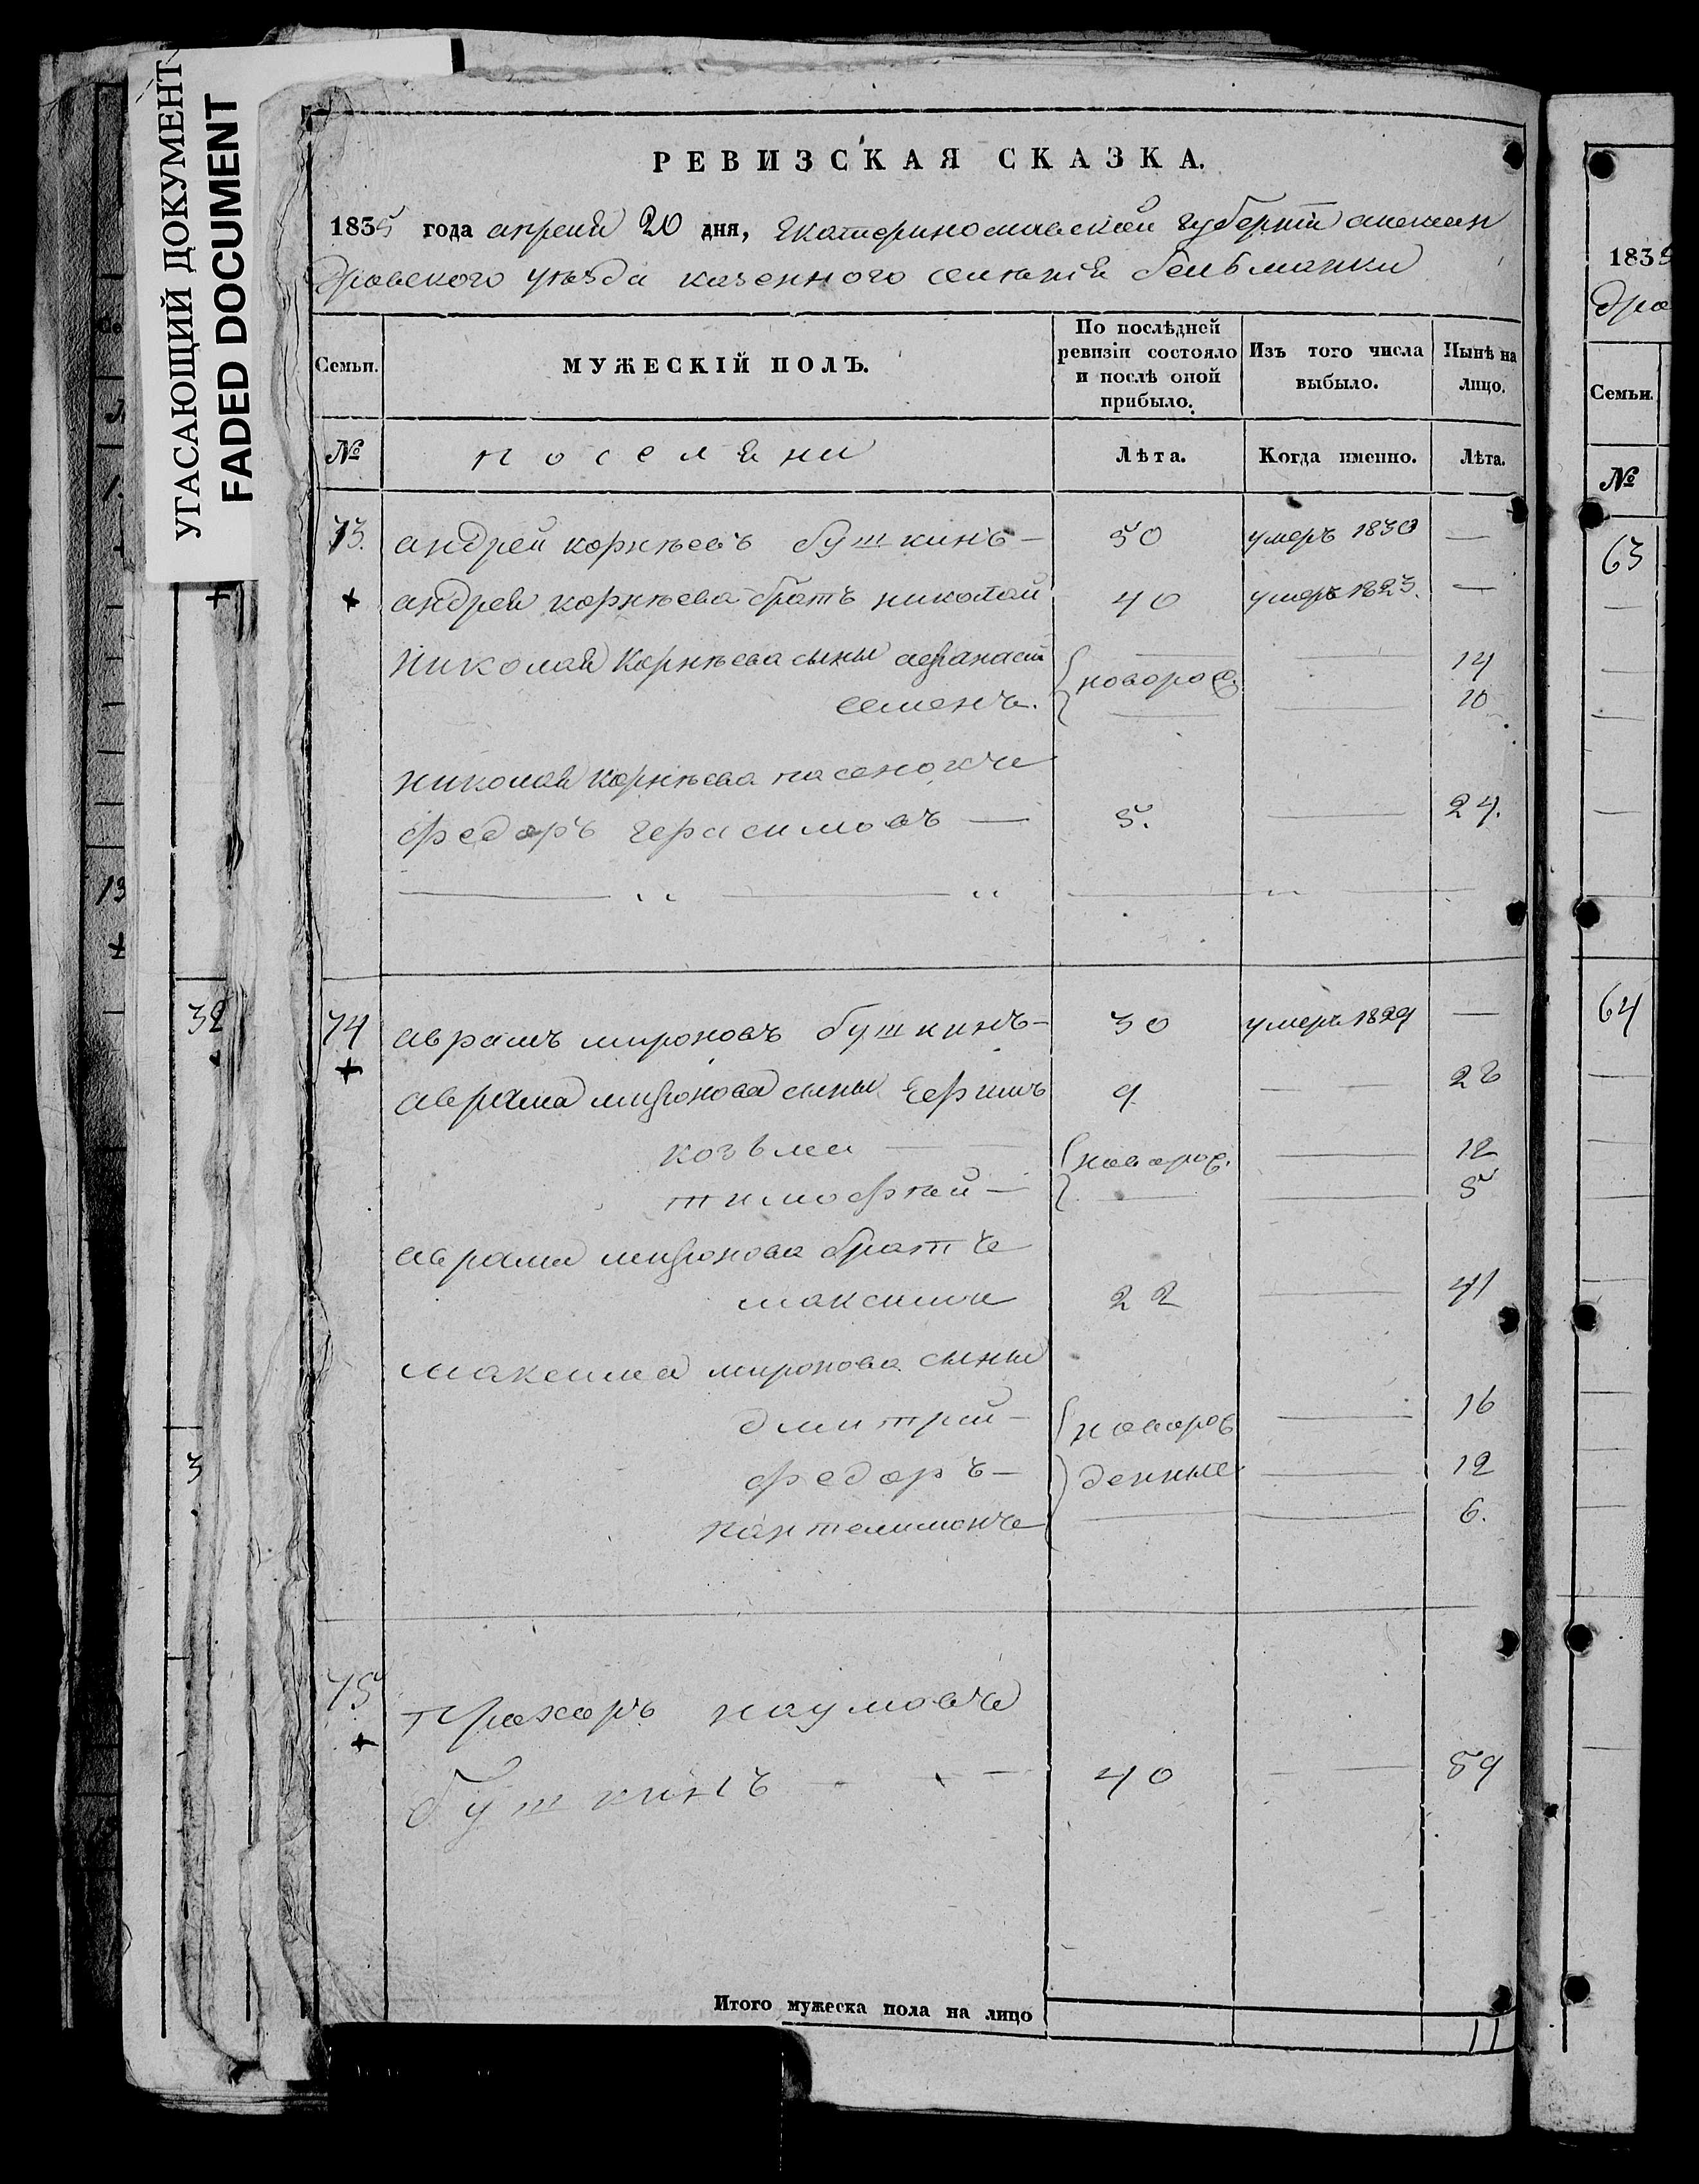 УГАСАЮЩИЙ ДОКУМЕНТ
FADED DOCUMENT
РЕВИЗСКАЯ СКАЗКА.
1835 года апреля 20 дня, Екатеринославской губернии александ
дровского уѣзда казенного селенія бельманки
Семьи.
МУЖЕСКІЙ ПОЛЪ.
По послѣдней ревизіи состояло и послѣ оной прибыло.
Изъ того числа выбыло.
Нынѣ на лицо.
№ поселяни Лѣта. Когда именно. Лѣта.
73. андрей корнѣевъ бушкинъ — 50 умеръ 1830 —
андрея корнѣева братъ николай 40 умеръ 1823. —
николая корнѣева сыны афанасій 14
новорож.
семенъ. 10
николая корнѣева пасенокъ
федоръ герасимовъ — 5. — 24.
74 аврамъ мироновъ бушкинъ — 30 умеръ 1829 —
аврама миронова сыны Ефимъ 9 — 28
козьма — новорож. — 12
тимофей — 5
аврама миронова братъ
максимъ 22 — 41
максима миронова сыны
дмитрий — новорож — 16
федоръ — денные — 12
пантелимонъ — 6.
75 Прохоръ наумовъ
бушкинъ — 40 — 59
Итого мужеска пола на лицо 11
32
3
1835
дро
Семьи.
№
63
64